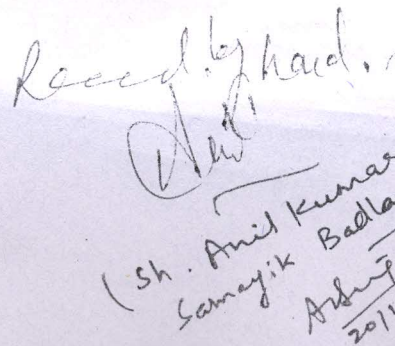 Recvd. by hand.
Anil
(Sh. Anil Kumar
Samayik Badla
20/1